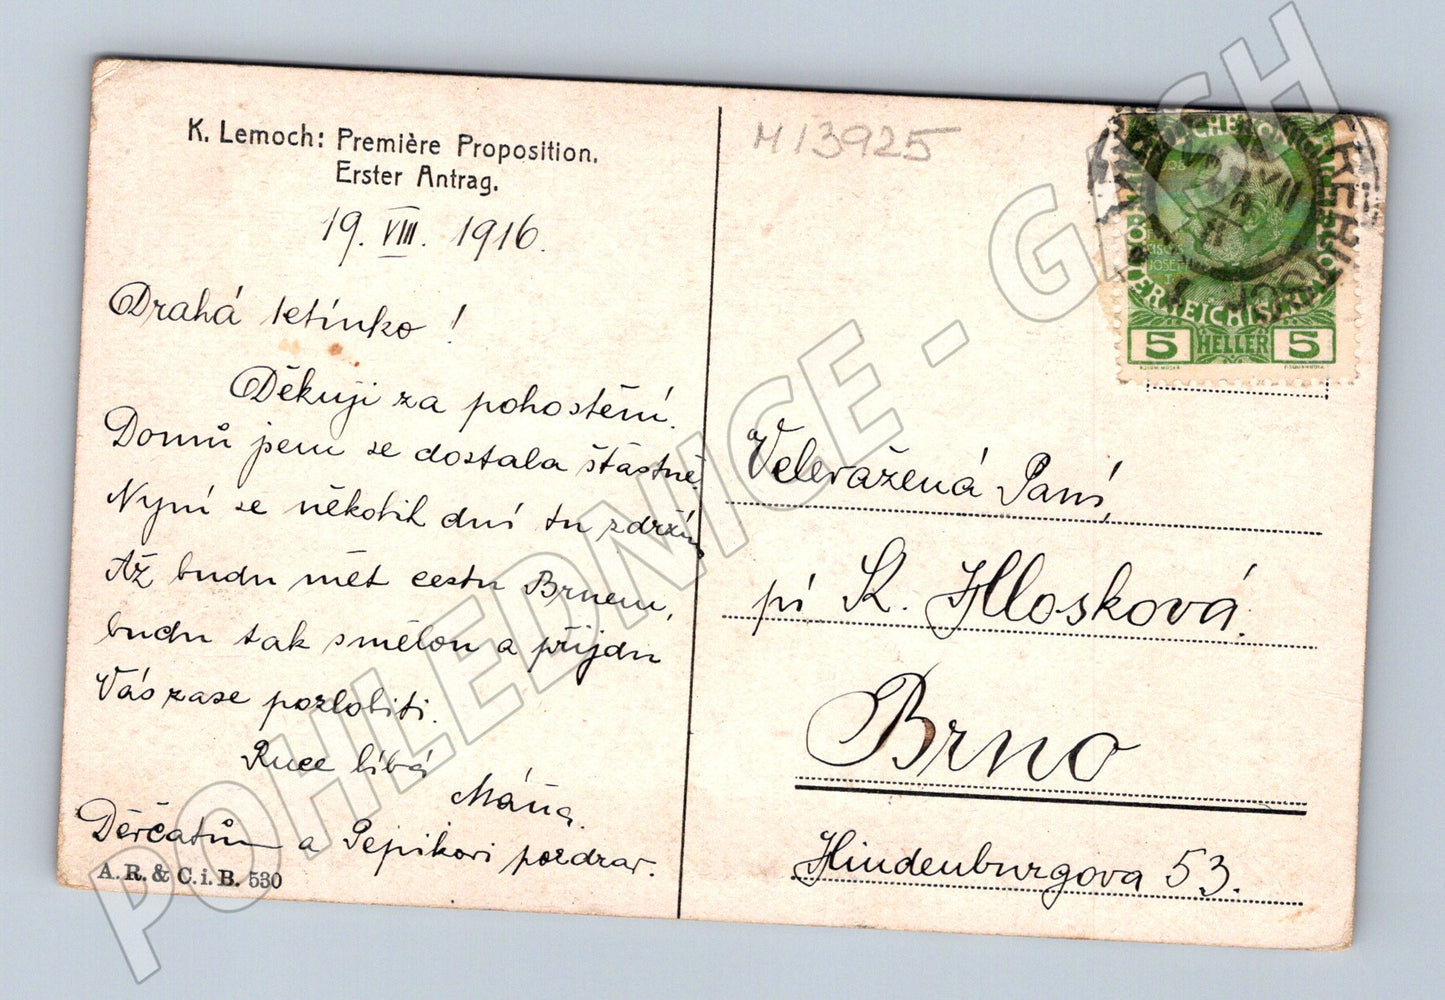 K. Lemoch: Première Proposition.
Erster Antrag.
19. VIII. 1916.
Drahá tetínko!
Děkuji za pohostění.
Domů jsem se dostala šťastně.
Nyní se několik dní tu zdržím
Až budu mět cestu Brnem,
budu tak smělou a přijdu
Vás zase pozlobiti.
Ruce líbá
Máňa.
Děrčatům a Pepikovi pozdrav.
A. R. & C. i. B. 530
M 13925
5 HELLER 5
Velevážená Paní,
pí K. Hlosková.
Brno
Hindenburgova 53.
POHLEDNICE - GASH